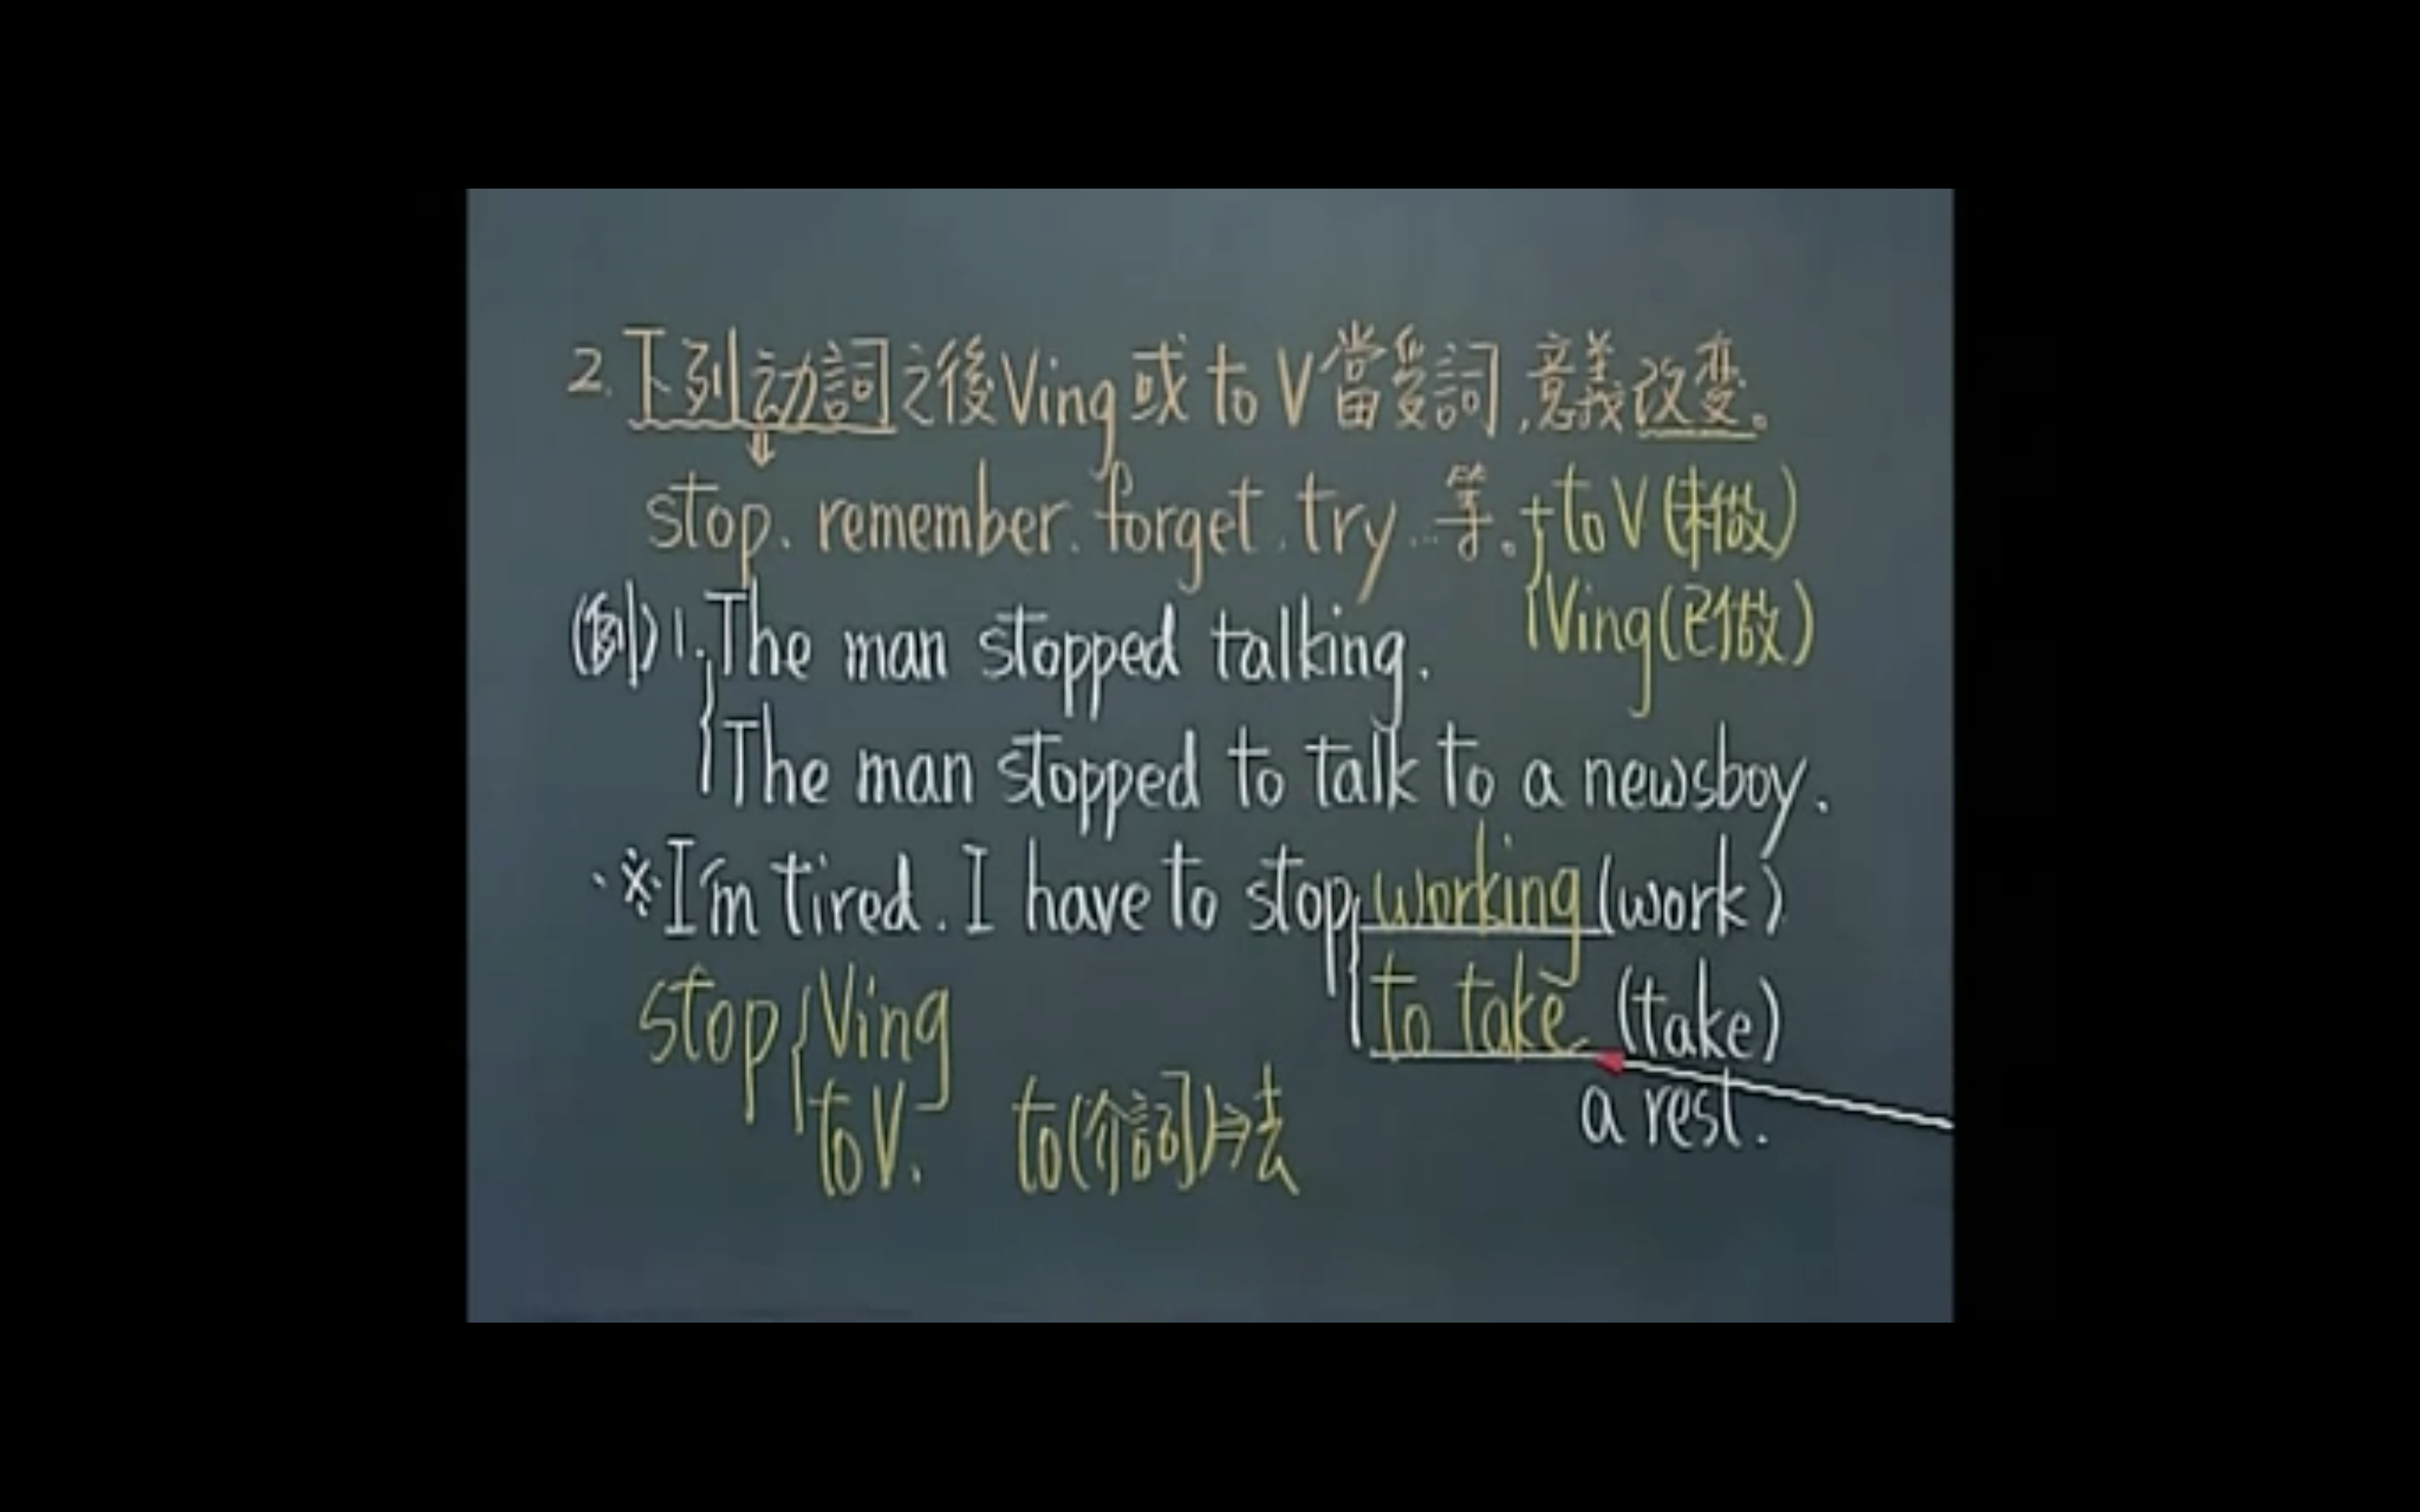 2. 下列动詞之後Ving或 to V當受詞,意義改变。
stop、remember、forget、try…等。{+to V (未做)
Ving(已做)
(例) 1. The man stopped talking.
The man stopped to talk to a newsboy.
※I'm tired. I have to stop working (work)
to take (take)
a rest.
stop { Ving
to V. to(介詞)⇒去